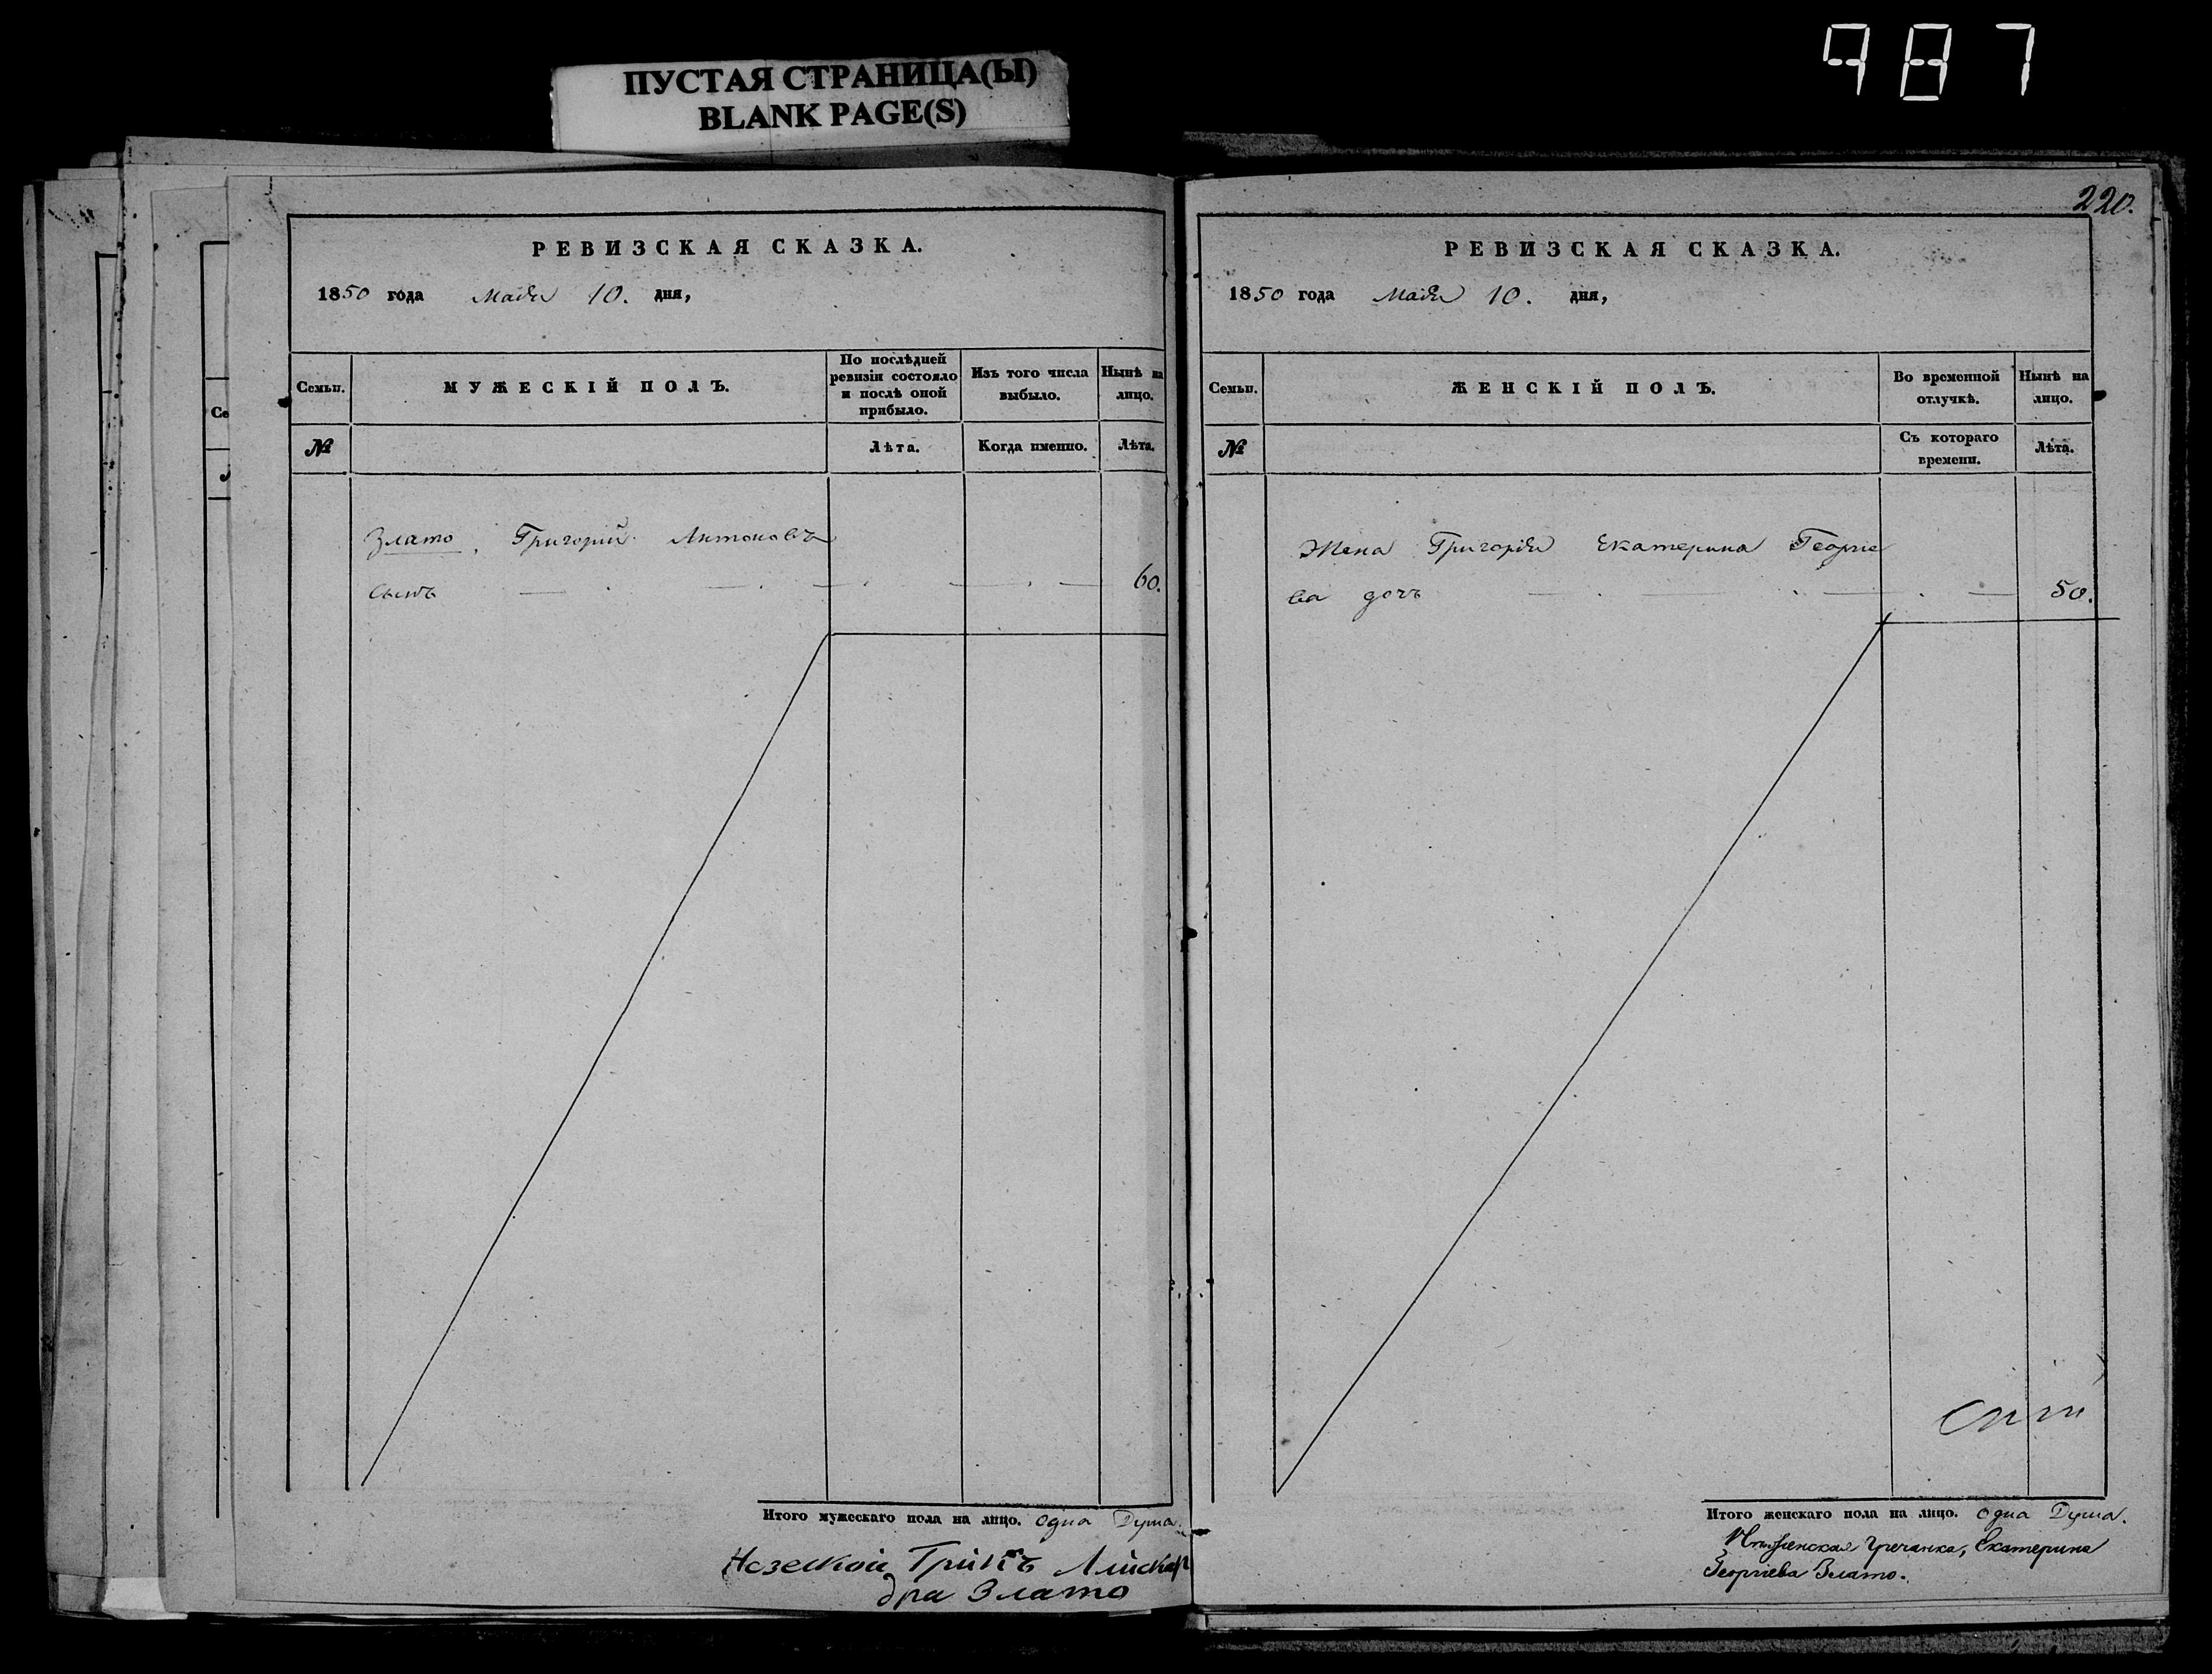 987
ПУСТАЯ СТРАНИЦА(Ы)
BLANK PAGE(S)
РЕВИЗСКАЯ СКАЗКА.
1850 года Маія 10. дня,
Семьи.
МУЖЕСКІЙ ПОЛЪ.
По послѣдней ревизіи состояло и послѣ оной прибыло.
Изъ того числа выбыло.
Нынѣ на лицо.
№
Лѣта.
Когда именно.
Лѣта.
Злато, Григорій Антоновъ
сынъ 60.
Итого мужескаго пола на лицо. одна Душа.
Грикъ
дра Злато
220.
РЕВИЗСКАЯ СКАЗКА.
1850 года Маія 10. дня,
Семьи.
ЖЕНСКІЙ ПОЛЪ.
Во временной отлучкѣ.
Нынѣ на лицо.
№
Съ котораго времени.
Лѣта.
Жена Григорія Екатерина Георгіе
ва дочь 50.
Итого женскаго пола на лицо. одна Душа.
Гречанка, Екатерина
Георгіева Злато.
Се